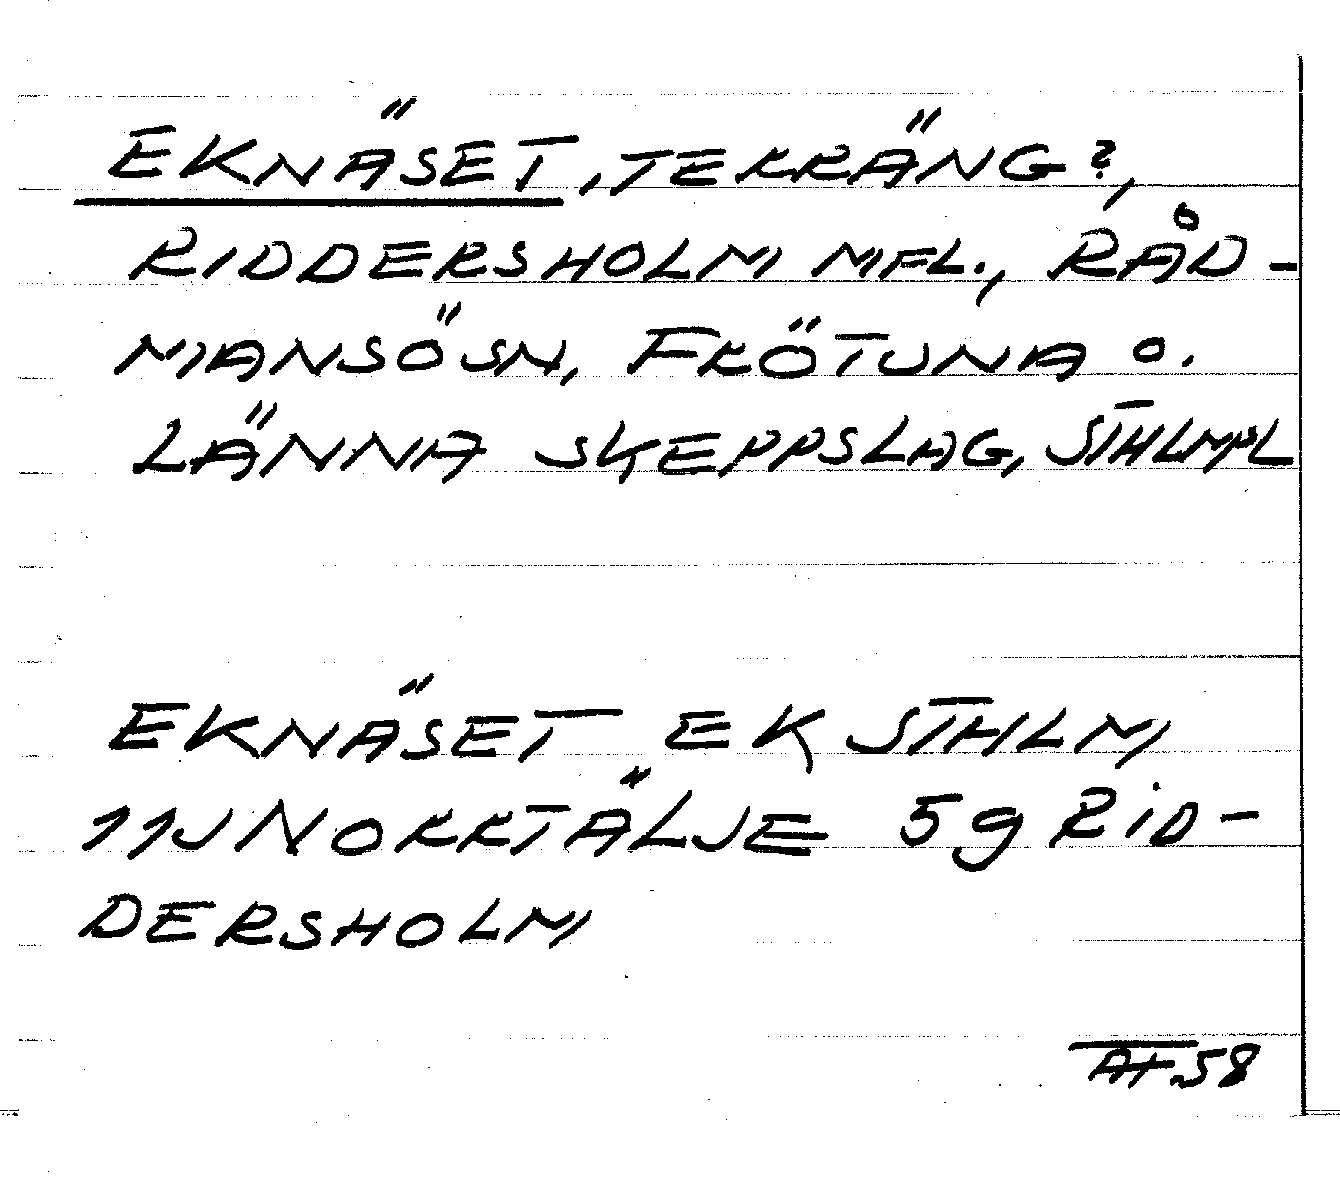 EKNÄSET, TERRÄNG?,
RIDDERSHOLM MFL., RÅD-
MANSÖSN, FRÖTUNA O.
LÄNNA SKEPPSLAG, STHLMPL
EKNÄSET EK STHLM
11J NORRTÄLJE 5g RID-
DERSHOLM
AF.58